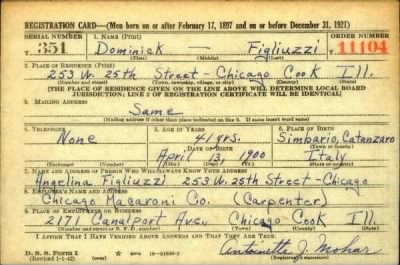 REGISTRATION CARD—(Men born on or after February 17, 1897 and on or before December 31, 1921)
SERIAL NUMBER 1. NAME (Print) ORDER NUMBER
T. 351 Dominick — Figliuzzi 11104
(First) (Middle) (Last)
2. PLACE OF RESIDENCE (Print)
253 W. 25th Street - Chicago Cook Ill.
(Number and street) (Town, township, village, or city) (County) (State)
(THE PLACE OF RESIDENCE GIVEN ON THE LINE ABOVE WILL DETERMINE LOCAL BOARD
JURISDICTION; LINE 2 OF REGISTRATION CERTIFICATE WILL BE IDENTICAL)
3. MAILING ADDRESS
Same
(Mailing address if other than place indicated on line 2. If same insert word same)
4. TELEPHONE 5. AGE IN YEARS 6. PLACE OF BIRTH
None 41 yrs. Simbario, Catanzaro
DATE OF BIRTH
April 13, 1900 Italy
7. NAME AND ADDRESS OF PERSON WHO WILL ALWAYS KNOW YOUR ADDRESS
Angelina Figliuzzi 253 W. 25th Street - Chicago
8. EMPLOYER'S NAME AND ADDRESS
Chicago Macaroni Co. (Carpenter)
9. PLACE OF EMPLOYMENT OR BUSINESS
2171 Canalport Ave., Chicago Cook Ill.
(Number and street or R. F. D. number) (Town) (County) (State)
I AFFIRM THAT I HAVE VERIFIED ABOVE ANSWERS AND THAT THEY ARE TRUE.
D. S. S. Form 1
(Revised 1-1-42) Antoinette J. Mohar